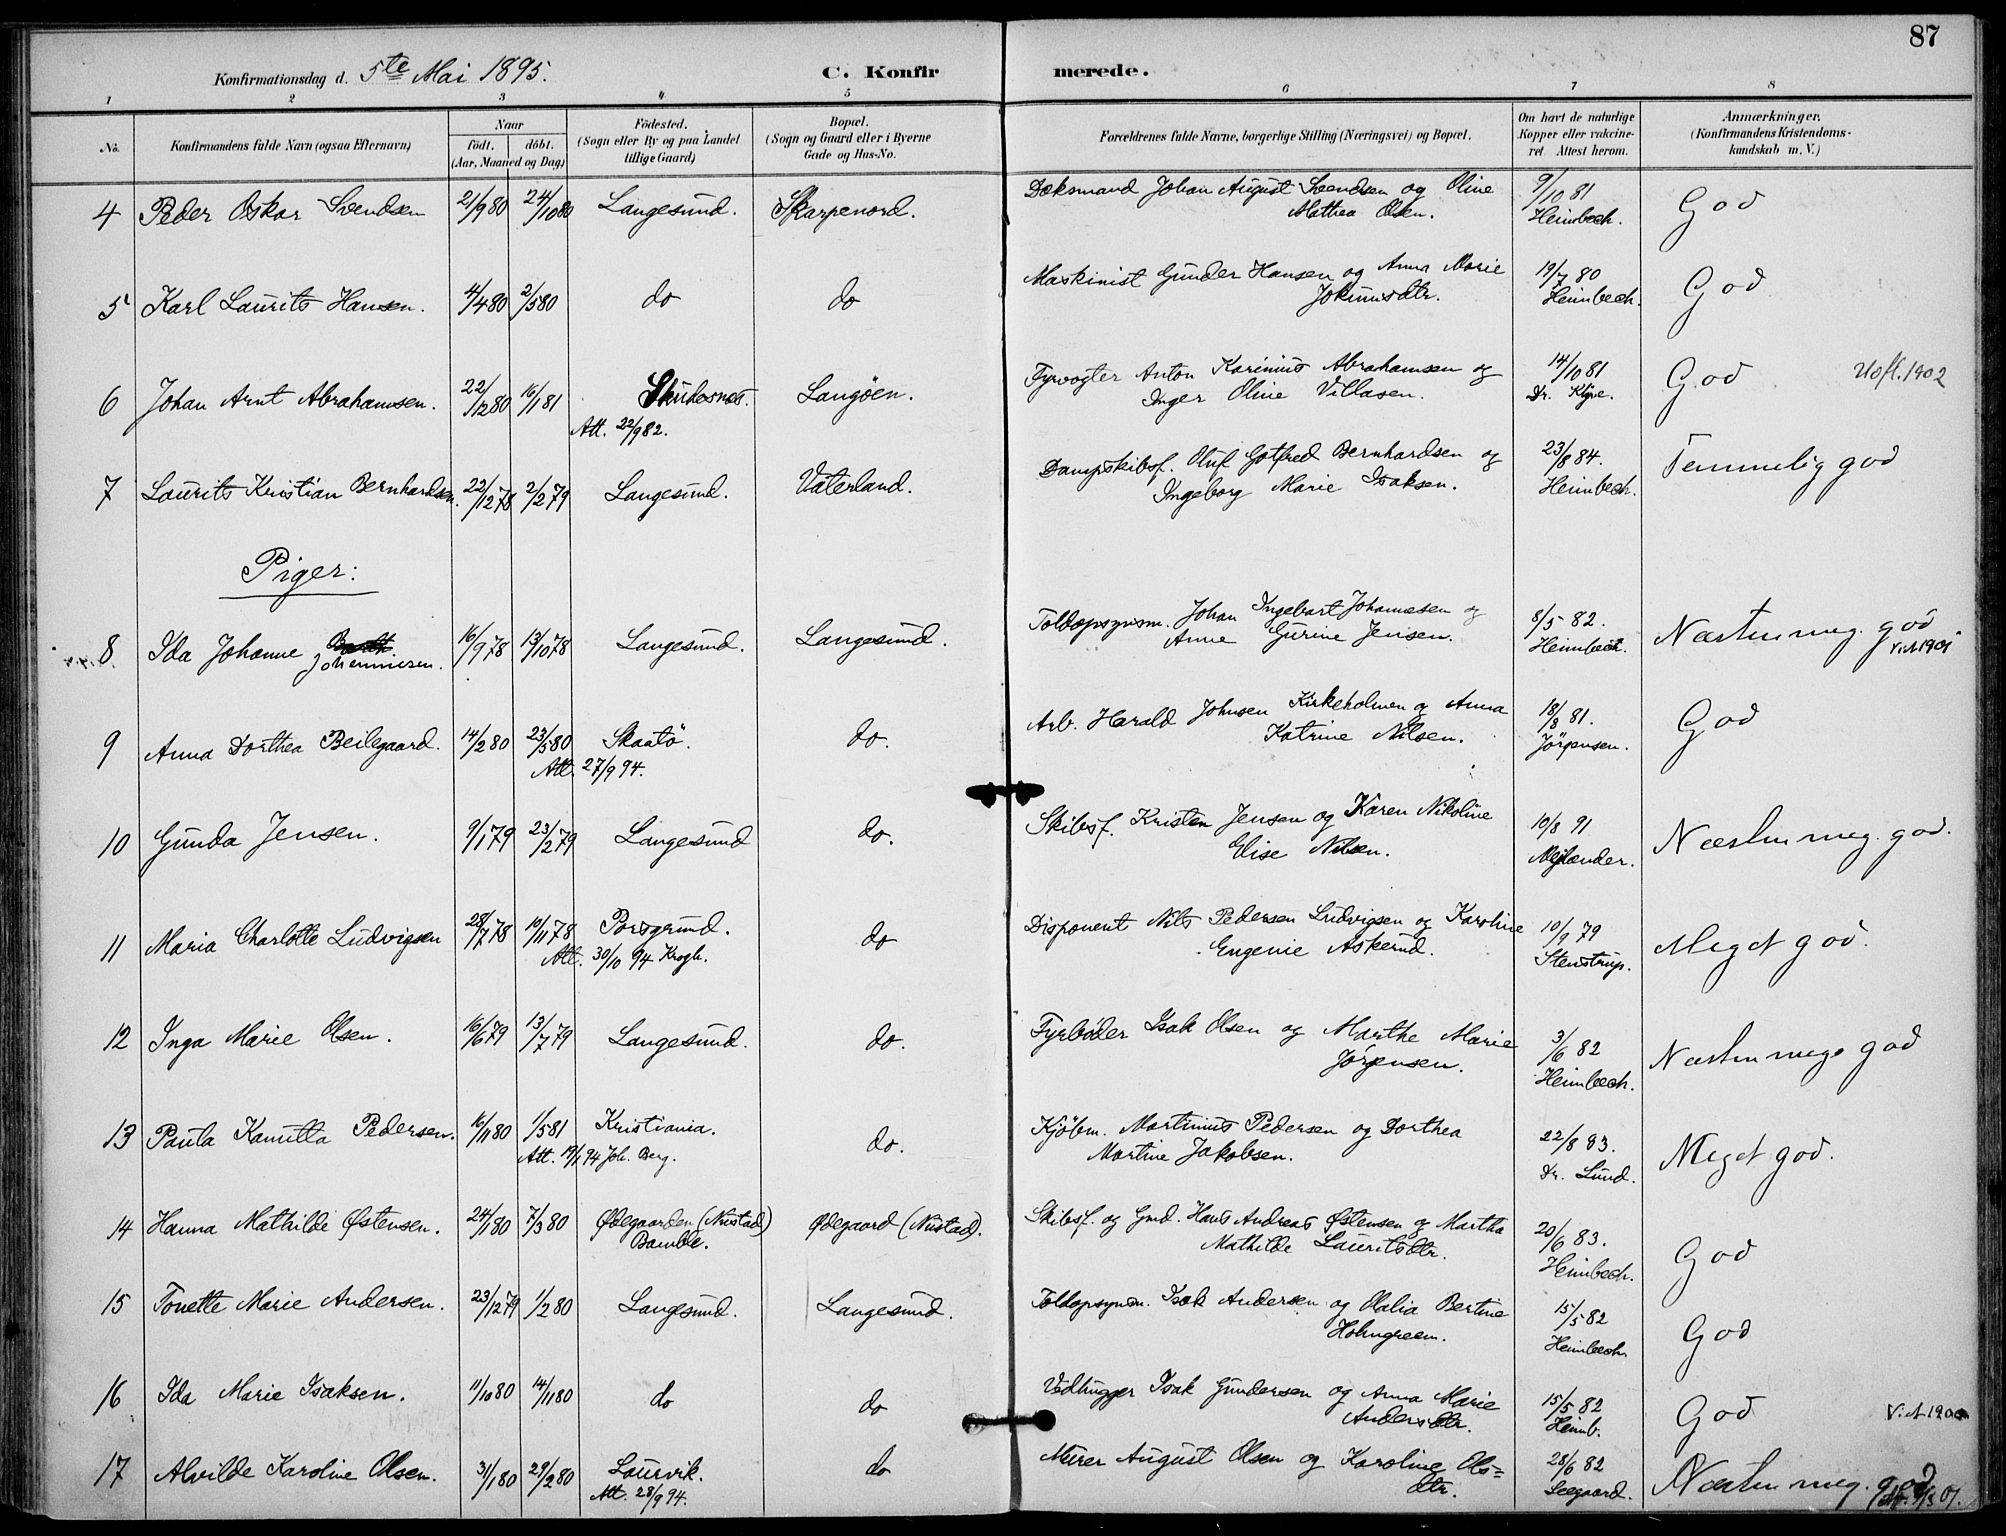 87
Konfirmationsdag d. 5te Mai 1895. C. Konfirmerede.
1 2 3 4 5 6 7 8
No. Konfirmandens fulde Navn (ogsaa Efternavn) Naar født. døbt. (Aar, Maaned og Dag) Fødested. (Sogn eller By og paa Landet tillige Gaard) Bopæl. (Sogn og Gaard eller i Byerne Gade og Hus-No. Forældrenes fulde Navne, borgerlige Stilling (Næringsvei) og Bopæl. Om havt de naturlige Kopper eller vakcineret Attest herom. Anmærkninger. (Konfirmandens Kristendomskundskab m. V.)
4 Peder Oskar Svendsen 21/9 80 24/10 80 Langesund. Skarpenord. Dæksmand Johan August Svendsen og Oline Mathea Olsen. 9/10 81 Heimbech. God
5 Karl Laurits Hansen. 4/4 80 2/5 80 do do Maskinist Gunder Hansen og Anna Marie Jokumsdtr. 19/7 80 Heimbech. God
6 Johan Arnt Abrahamsen. 22/12 80 16/1 81 Skudesnes. Att. 22/9 82. Langöen. Fyrvogter Anton Karinius Abrahamsen og Inger Oline Villasen. 14/10 81 Dr. God Udfl. 1902
7 Laurits Kristian Bernhardsen. 22/12 78 2/2 79 Langesund. Vaterland. Dampskibsf. Oluf Gotfred Bernhardsen og Ingeborg Marie Isaksen. 23/8 84. Heimbech. Temmelig god
Piger:
8 Ida Johanne Johannesen. 16/9 78 13/10 78 Langesund. Langesund. Toldopsynsm. Johan Ingebart Johannesen og Anne Gurine Jensen. 8/5 82. Heimbech. Næsten meg. god V.A 1901
9 Anna Dorthea Beilegaard. 14/2 80 23/5 80 Skaatö. Att. 27/9 94. do. Arb. Harald Johnsen Kirkeholmen og Anna Katrine Nilsen. 18/8 81. Jörgensen. God
10 Gunda Jensen. 9/1 79 23/2 79 Langesund do. Skibsf. Kristen Jensen og Karen Nikoline Elise Nilsen. 10/8 91 Mejlænder. Næsten meg. god.
11 Maria Charlotte Ludvigsen 28/7 78 10/11 78 Porsgrund. Att. 30/10 94 Krogh. do Disponent Nils Pedersen Ludvigsen og Karoline Engenie Askerud. 10/9 79 Stenstrup. Meget god.
12 Inga Marie Olsen. 16/6 79 13/7 79 Langesund. do. Fyrböder Isak Olsen og Marthe Marie Jörgensen. 3/6 82 Heimbech. Næsten meg. god
13 Paula Kamilla Pedersen. 16/11 80 1/5 81 Kristiania. Att. 94 Joh. Berg. do. Kjöbm. Martinius Pedersen og Dorthea Martine Jakobsen. 22/8 93. Dr. Lund. Meget god.
14 Hanna Mathilde Østensen. 24/1 80 7/3 80 Ødegaarden (Nustad) Bamble. Ødegaard (Nustad). Skibsf. og Gmd. Hans Andreas Østensen og Martha Mathilde Lauritsdtr. 20/6 83. Heimbech. God
15 Tonette Marie Andersen. 23/12 79 1/2 80 Langesund. Langesund. Toldopsynsm. Isak Andersen og Olalia Bertine Holmgreen. 15/5 82 Heimbech. God
16 Ida Marie Isaksen. 11/10 80 14/11 80 do do Vedhugger Isak Gundersen og Anna Marie Andersdtr. 15/5 82 Heimb. God V.A 1900
17 Alvilde Karoline Olsen. 31/1 80 29/2 80 Laurvik. Att. 28/9 94. do Murer August Olsen og Karoline Ols=dtr. 28/6 82 Seegaard. Næsten meg. god